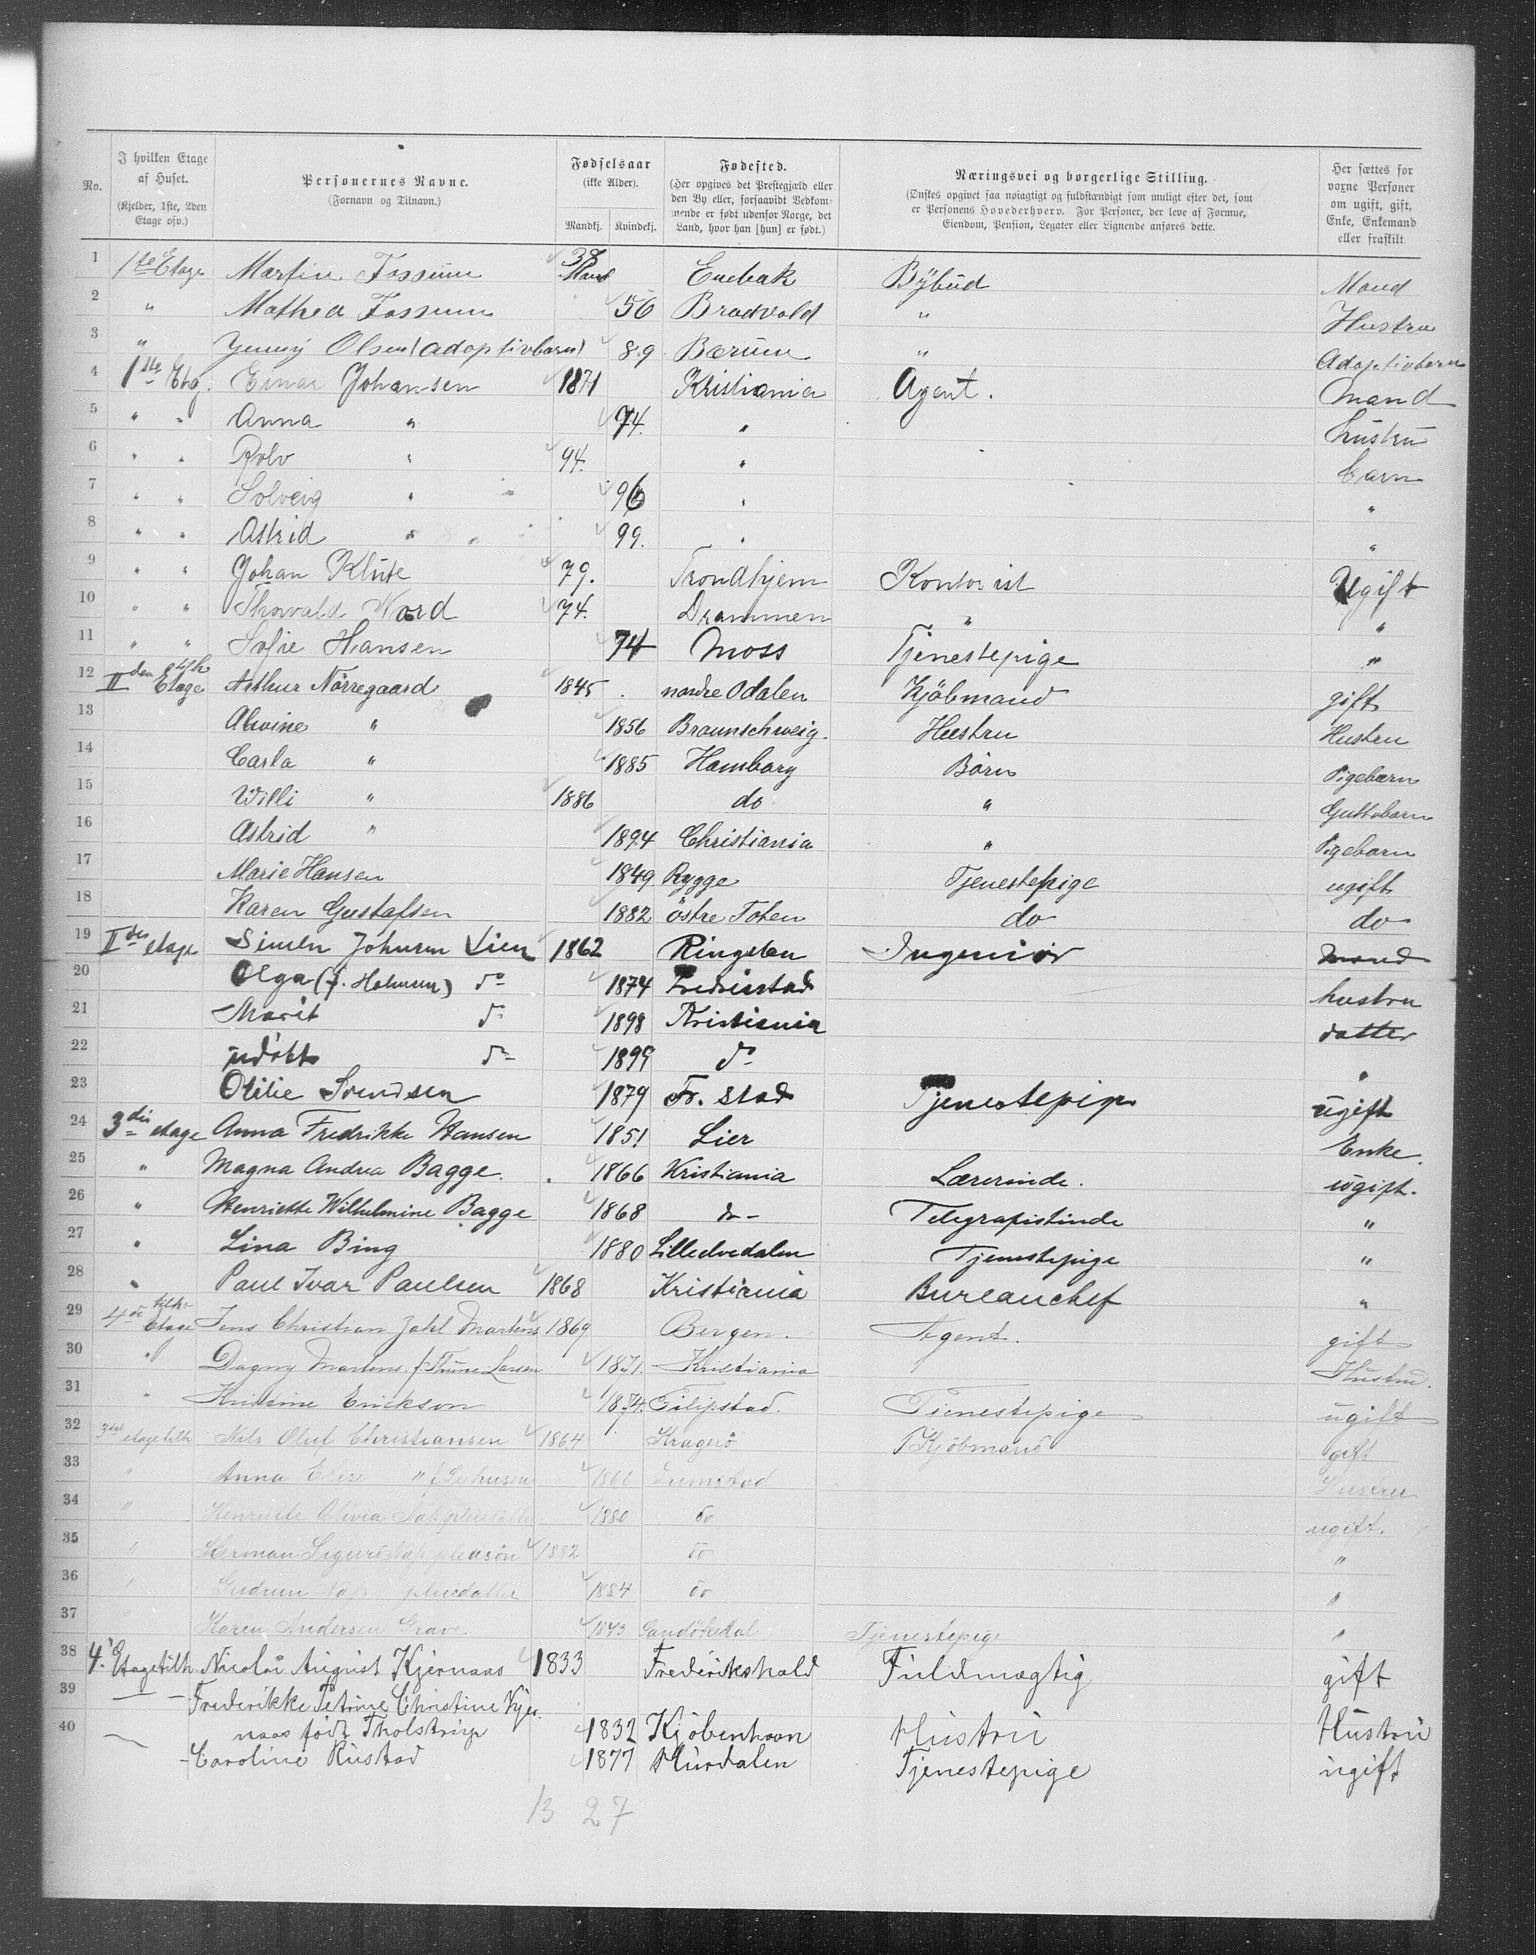 No.
I hvilken Etage af Huset.
(Kjelder, 1ste, 2den Etage osv.)
Personernes Navne.
(Fornavn og Tilnavn.)
Fødselsaar
(ikke Alder).
Mandkj. Kvindekj.
Fødested.
(Her opgives det Prestegjæld eller
den By eller, forsaavidt Vedkom-
mende er født udenfor Norge, det
Land, hvor han [hun] er født.)
Næringsvei og borgerlige Stilling.
(Ønskes opgivet saa nøiagtigt og fuldstændigt som muligt efter det, som
er Personens Hovederhverv. For Personer, der leve af Formue,
Eiendom, Pension, Legater eller Lignende anføres dette.
Her sættes for
vorne Personer
om ugift, gift,
Enke, Enkemand
eller fraskilt.
1 1ste Etage Martin Fossum 38 Enebak Bÿbud Mand
2 " Mathea Fossum 56 Bradvold " Hustru
3 " Jenny Olsen (adoptivbarn) 89 Bærum " Adoptivbarn
4 1ste Etg. Einar Johansen 1871 Kristiania Agent. Mand
5 " " Anna " 74. " Hustru
6 " " Rolv " 94. " Barn
7 " " Solveig " 96 " "
8 " " Astrid " 99. " "
9 " " Johan Klüte 79. Trondhjem Kontorist Ugift
10 " " Thorvald Nord 74. Drammen " "
11 " " Sofie Hansen 74 Moss Tjenestepige "
12 II den Etage Arthur Nörregaard 1845 nordre Odalen Kjöbmand gift
13 Alwine " 1856 Braunschweig. Hustru Hustru
14 Carla " 1885 Hamburg Börn Pigebarn
15 Willi " 1886 do " Guttebarn
16 Astrid " 1894 Christiania " Pigebarn
17 Marie Hansen 1849 Rygge Tjenestepige ugift
18 Karen Gustafsen 1882 Östre Toten do do
19 II den etage Simen Johnsen Lien 1862 Ringsten Ingeniør mand
20 Olga (f. Holmsen) do 1874 Fredrikstad hustru
21 Marit do 1898 Kristiania datter
22 udöbt do 1899 do "
23 Otilie Svendsen 1879 Fr. stad Tjenestepige ugift
24 3die etage Anna Fredrikke Hansen 1851 Lier Enke.
25 " Magna Andrea Bagge. 1866 Kristiania Lærerinde. ugift.
26 " Henriette Wilhelmine Bagge 1868 do - Telegrafistinde "
27 " Lina Bing 1880 Lilleelvedalen Tjenestepige "
28 " Paul Ivar Paulsen 1868 Kristiania Bureauchef "
29 4de Etage tilh. Jens Christian Jahl Martens 1869 Bergen. Agent. gift
30 " Dagny Martens f. Thune Larsen 1871. Kristiania Hustru.
31 " Kristine Erickson 1874. Filipstad. Tjenestepige ugift
32 3die etage tilh Nils Oluf Christiansen 1864 Kragerö Kjöbmand gift
33 " Anna Elise " f. 1861 Grimstad Hustru
34 " Henriette Olivia 1880 do ugift.
35 " Herman Sigurd 1882 do "
36 " Gudrun 1884 do "
37 Karen Andersen Grave 1843 Sandökedal Tjenestepige "
38 4. Etage tilh Nicolai August Kjernaas 1833 Frederikshald Fuldmægtig gift
39 — - Frederikke Petrine Christine Kjer-
40 — naas født Tholstrup 1832 Kjöbenhavn Hustru Hustru
- Caroline Rustad 1877 Hurdalen Tjenestepige ugift
13 27